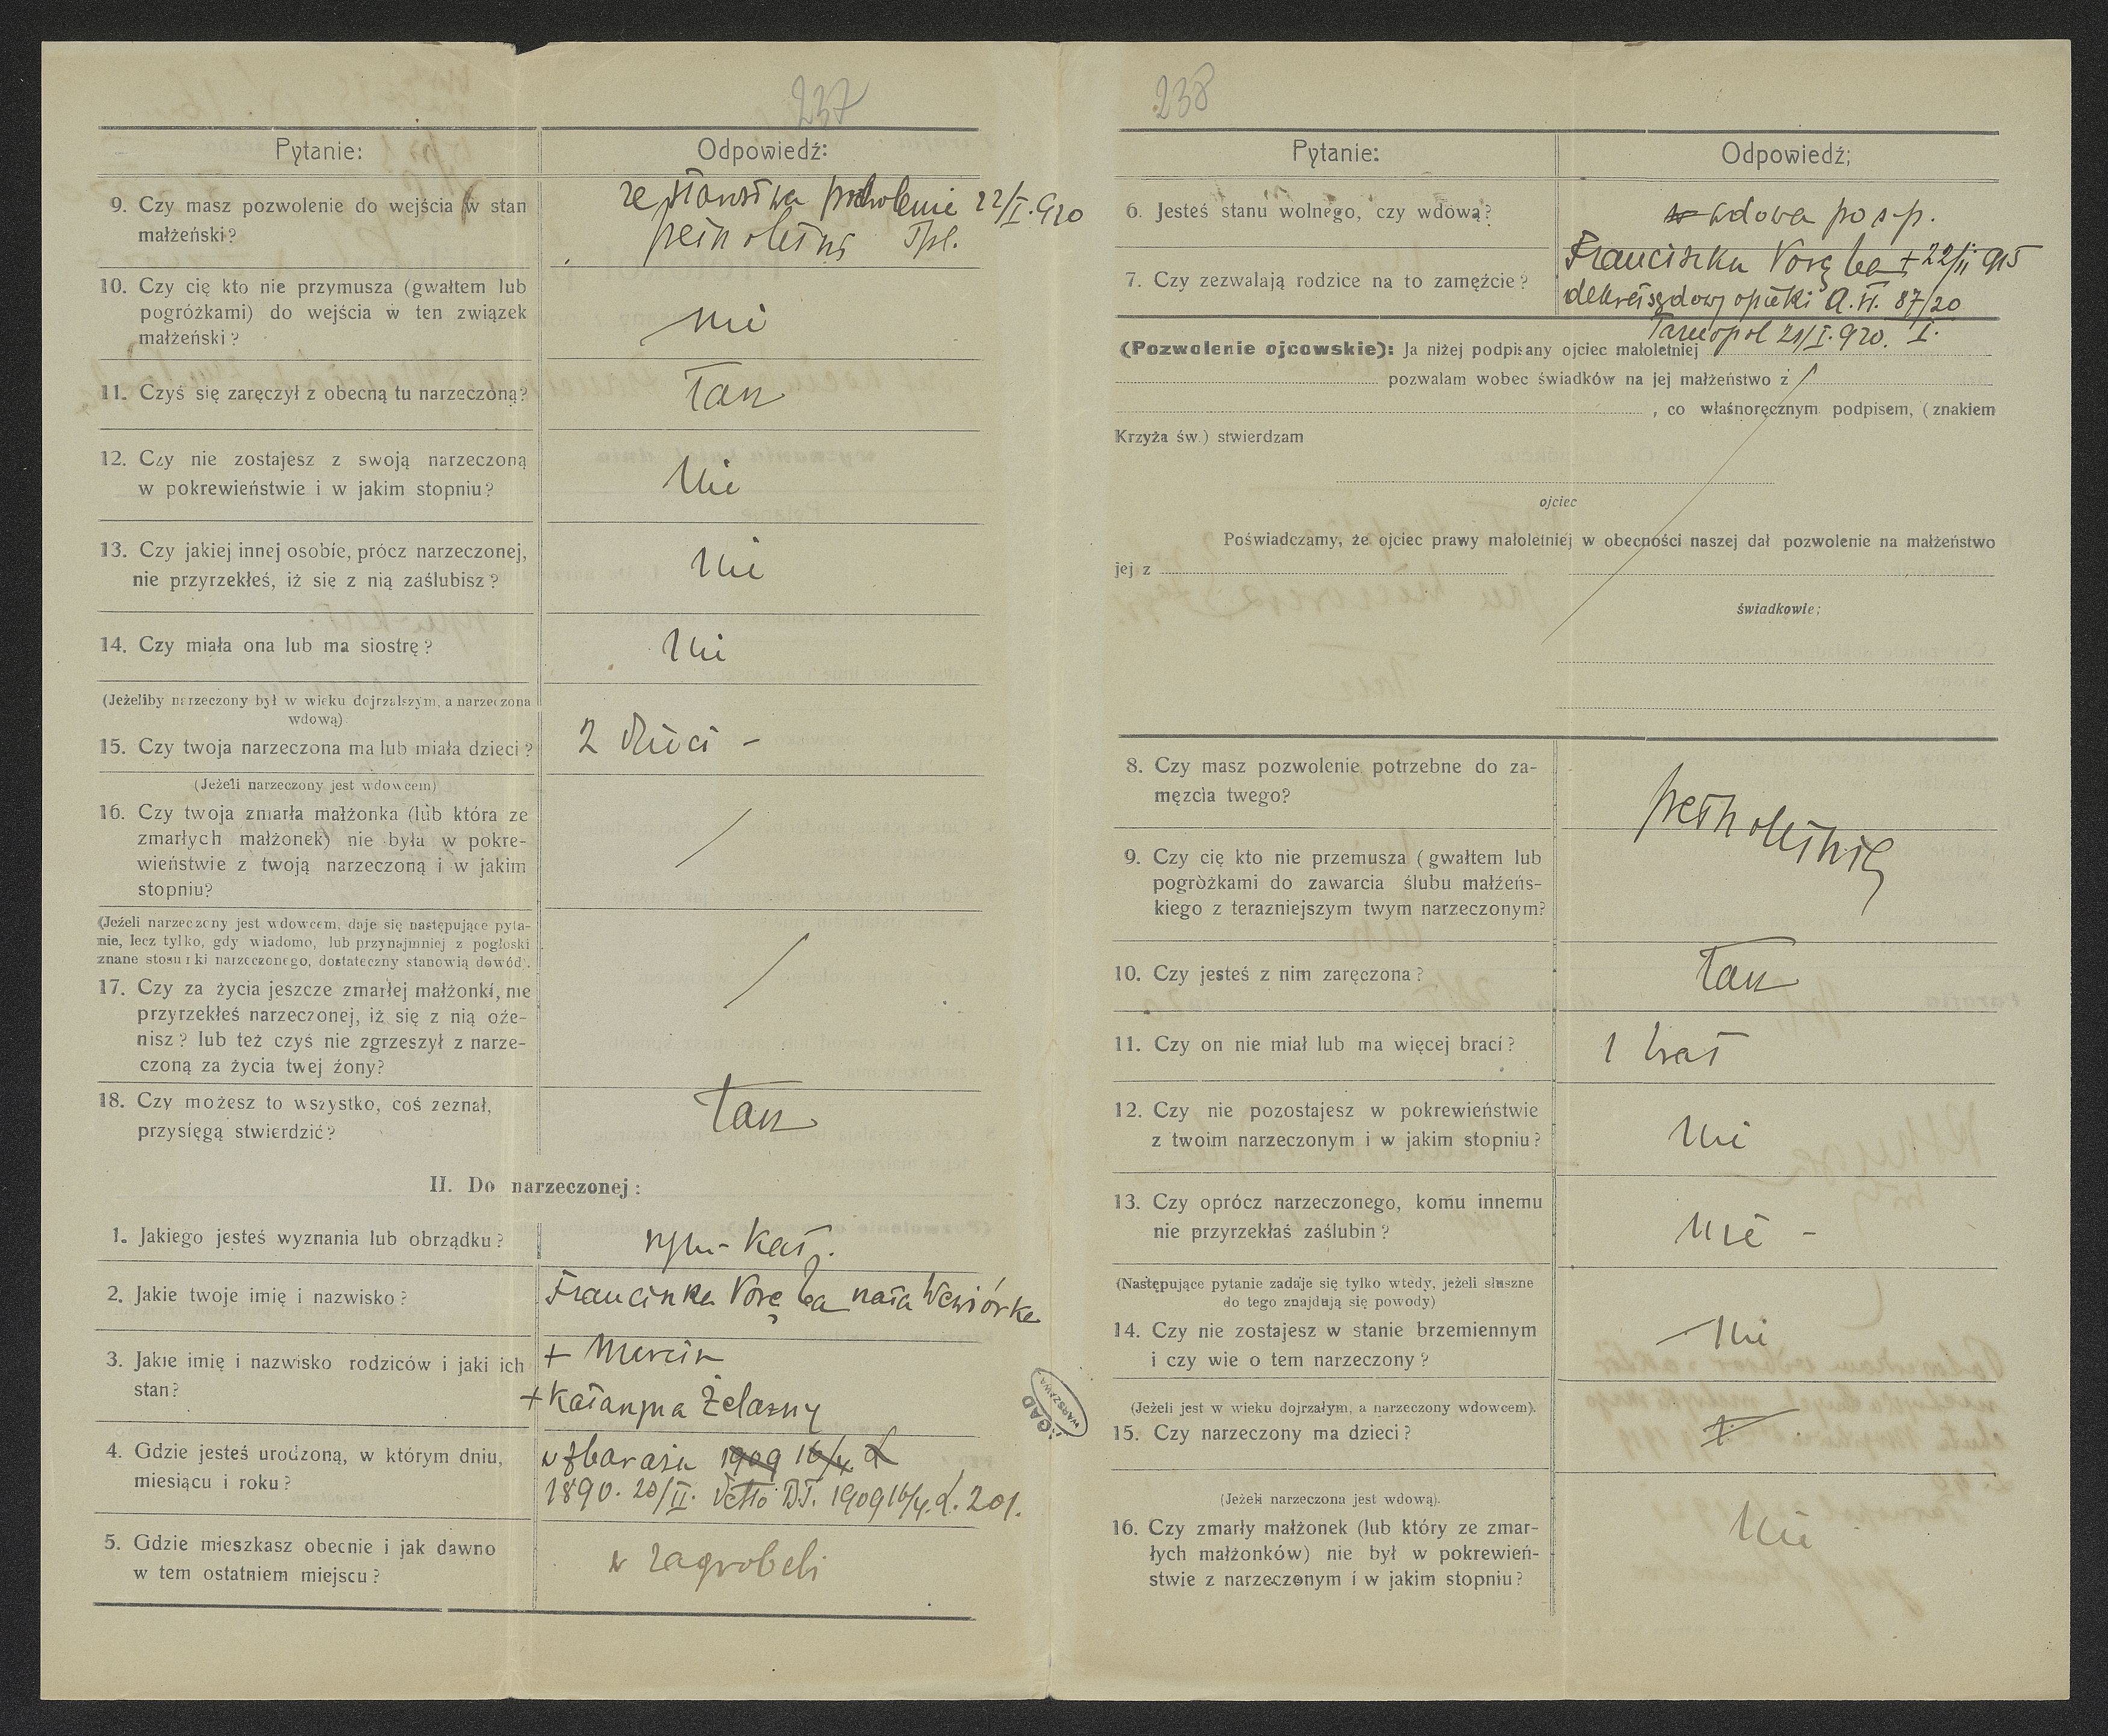 237
Pytanie: Odpowiedź:
9. Czy masz pozwolenie do wejścia w stan
małżeński?
ze starostwa pozwolenie 22/I.920
pełnoletni Tpl.
10. Czy cię kto nie przymusza (gwałtem lub
pogróżkami) do wejścia w ten związek
małżeński?
nie
11. Czyś się zaręczył z obecną tu narzeczoną?
Tak
12. Czy nie zostajesz z swoją narzeczoną
w pokrewieństwie i w jakim stopniu?
Nie
13. Czy jakiej innej osobie, prócz narzeczonej,
nie przyrzekłeś, iż się z nią zaślubisz?
Nie
14. Czy miała ona lub ma siostrę?
Nie
(Jeżeliby narzeczony był w wieku dojrzalszym, a narzeczona
wdową)
15. Czy twoja narzeczona ma lub miała dzieci?
2 dzieci -
(Jeżeli narzeczony jest wdowcem)
16. Czy twoja zmarła małżonka (lub która ze
zmarłych małżonek) nie była w pokre-
wieństwie z twoją narzeczoną i w jakim
stopniu?
(Jeżeli narzeczony jest wdowcem, daje się następujące pyta-
nie, lecz tylko, gdy wiadomo, lub przynajmniej z pogłoski
znane stosunki narzeczonego, dostateczny stanowią dowód).
17. Czy za życia jeszcze zmarłej małżonki, nie
przyrzekłeś narzeczonej, iż się z nią oże-
nisz? lub też czyś nie zgrzeszył z narze-
czoną za życia twej żony?
18. Czy możesz to wszystko, coś zeznał,
przysięgą stwierdzić?
Tak
II. Do narzeczonej:
1. Jakiego jesteś wyznania lub obrządku?
rzym-kat.
2. Jakie twoje imię i nazwisko?
Franciszka Poręba nata Wewiórka
3. Jakie imię i nazwisko rodziców i jaki ich
stan?
+ Marcin
+ Katarzyna Żelazny
4. Gdzie jesteś urodzoną, w którym dniu,
miesiącu i roku?
w Zbarażu 1909 16/4 d
1890. 20/II. 1909 16/4. d. 201.
5. Gdzie mieszkasz obecnie i jak dawno
w tem ostatniem miejscu?
w Zagrobeli
AGAD
WARSZAWA
238
Pytanie: Odpowiedź;
6. Jesteś stanu wolnego, czy wdową?
wdowa po s.p.
Franciszku Poręba + 22/II 915
7. Czy zezwalają rodzice na to zamęźcie?
dekret sądowy opieki A. VI. 87/20
Tarnopol 21/I.920. I.
(Pozwolenie ojcowskie): Ja niżej podpisany ojciec małoletniej
pozwalam wobec świadków na jej małżeństwo z
, co własnoręcznym podpisem, (znakiem
Krzyża św.) stwierdzam
ojciec
Poświadczamy, że ojciec prawy małoletniej w obecności naszej dał pozwolenie na małżeństwo
jej z
świadkowie;
8. Czy masz pozwolenie potrzebne do za-
męzcia twego?
pełnoletnią
9. Czy cię kto nie przemusza (gwałtem lub
pogròżkami do zawarcia ślubu małżeńs-
kiego z terazniejszym twym narzeczonym?
10. Czy jesteś z nim zaręczona?
Tak
11. Czy on nie miał lub ma więcej braci?
1 brat
12. Czy nie pozostajesz w pokrewieństwie
z twoim narzeczonym i w jakim stopniu?
Nie
13. Czy oprócz narzeczonego, komu innemu
nie przyrzekłaś zaślubin?
Nie -
(Następujące pytanie zadaje się tylko wtedy, jeżeli słuszne
do tego znajdują się powody)
14. Czy nie zostajesz w stanie brzemiennym
i czy wie o tem narzeczony?
Nie
(Jeżeli jest w wieku dojrzałym, a narzeczony wdowcem).
15. Czy narzeczony ma dzieci?
(Jeżeli narzeczona jest wdową).
16. Czy zmarły małżonek (lub który ze zmar-
łych małżonków) nie był w pokrewień-
stwie z narzeczonym i w jakim stopniu?
Nie